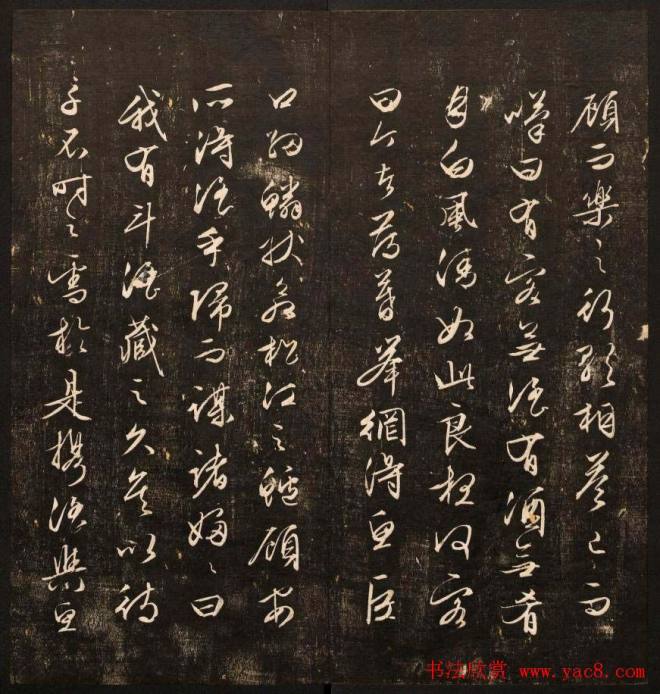 顧而樂之行歌相荅已而
嘆曰有客無酒有酒無肴
月白風清如此良夜何客
曰今者薄暮舉網得魚巨
口細鱗狀若松江之鱸顧安
所得酒乎歸而謀諸婦〻曰
我有斗酒藏之久矣以待
子不時之需於是携酒與魚
书法欣赏 www.yac8.com